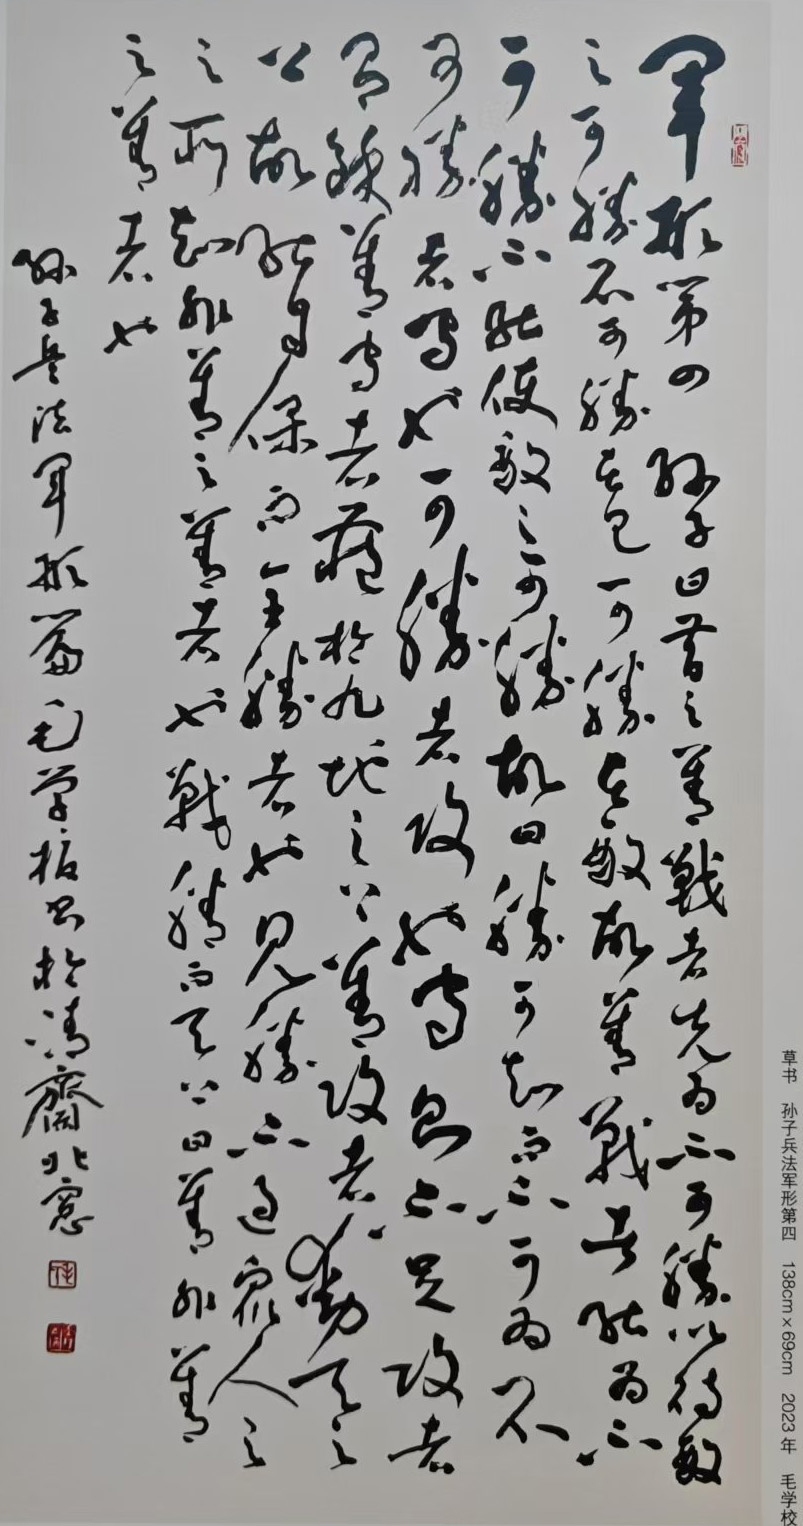 軍形第四孫子曰昔之善戰者先為不可勝以待敵
之可勝不可勝在己可勝在敵故善戰者能為不
可勝不能使敵之可勝故曰勝可知而不可為不
可勝者守也可勝者攻也守則不足攻者
有餘善守者藏於九地之下善攻者動天之
上故能自保而全勝者也見勝不過衆人之
之所知非善之善者也戰勝而天下曰善非善
之善者也
孫子兵法軍形篇毛学校書於清齋北窓
草书 孙子兵法军形第四 138cm×69cm 2023年 毛学校